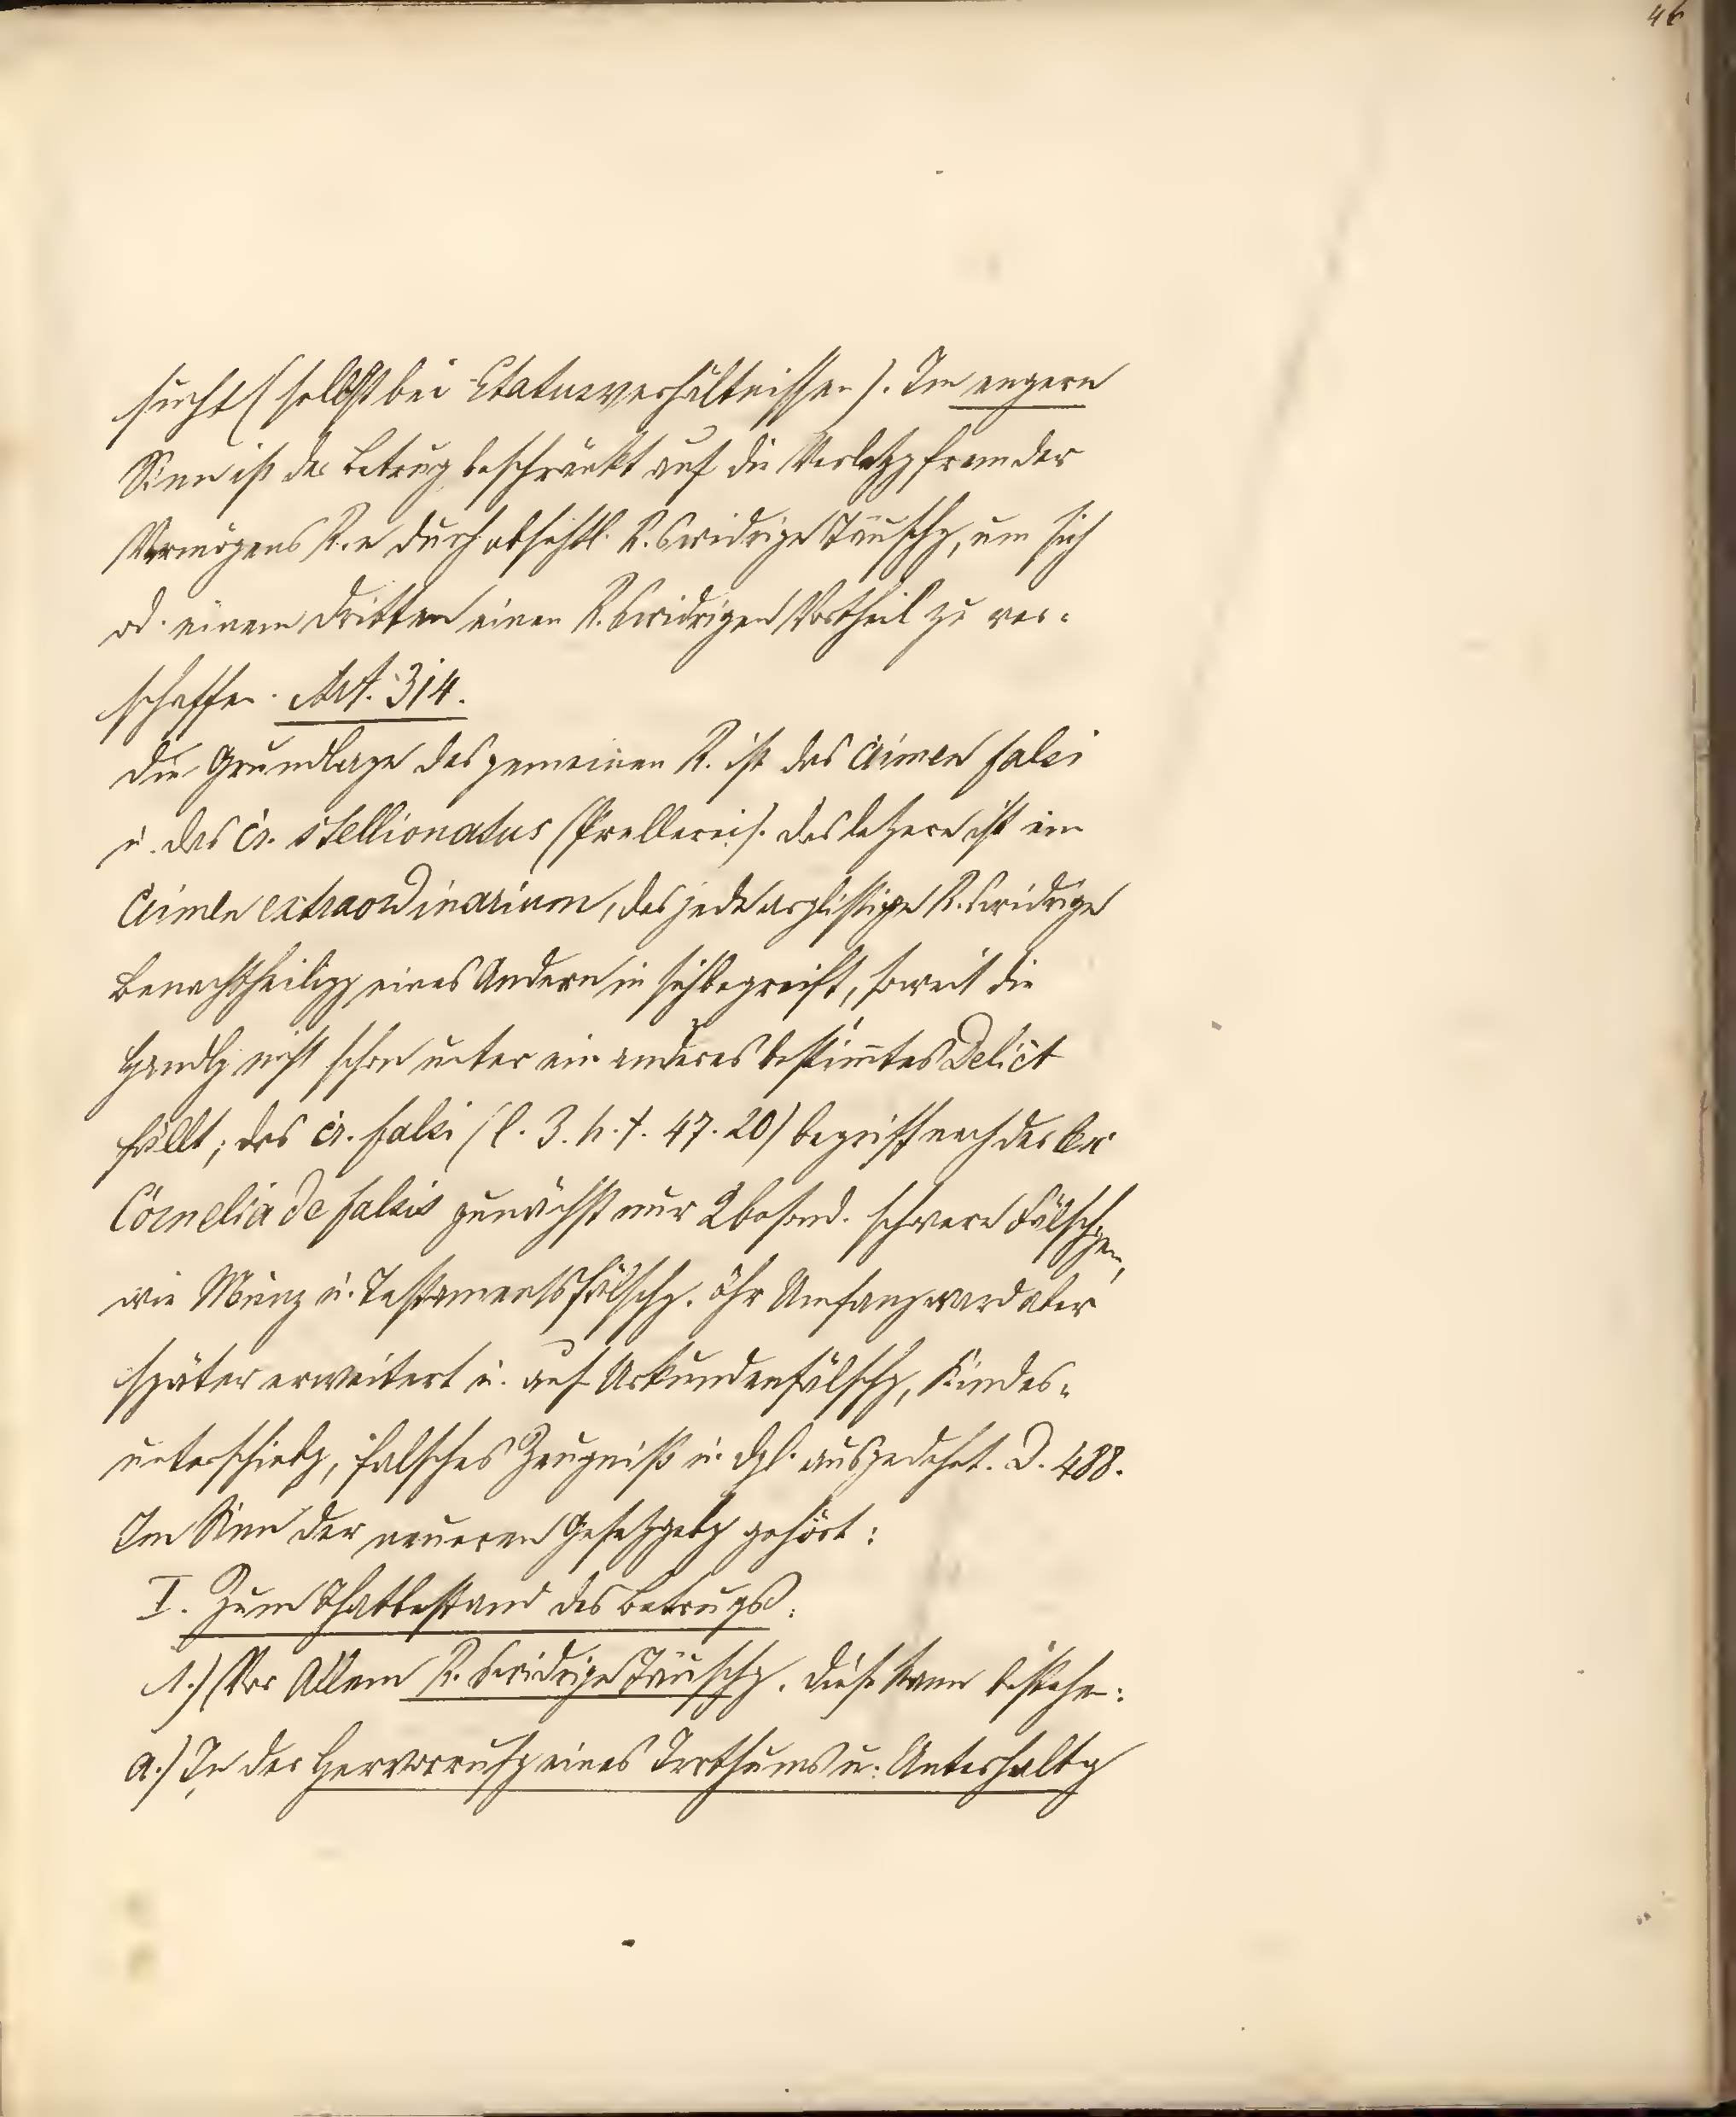 46
sucht (selbst bei Statusverhältnissen). Im engern
Sinn ist der Betrug beschränkt auf die Verletzg fremder
Vermögens R.e durch absichtl. R.swidrige Täuschg, um sich
od. einem Dritten einen R.swidrigen Vortheil zu ver-
schaffen. Art. 314.
Die Grundlage des gemeinen R. ist das Crimen falsi
u. das Cr. stellionatus (Prellerei). Das letzere ist ein
Crimen extraordinarium, das jede arglistige R.swidrige
Benachtheiligg eines Andern in sich begreift, soweit die
Handlg nicht schon unter ein anderes bestim̄tes Delict
fällt; das cr. falsi (l. 3. h. t. 47. 20) begriff nach der lex
Cornelia de falsis zunächst nur besond. schwere Fälschgen,
wie Münz u. Testamentsfälschg. Ihr Umfang ward aber
später erweitert u. auf Urkundenfälschg, Kindes-
unterschiebg, falsches Zeugniß u. dgl. ausgedehnt. D. 488.
Im Sinn der neueren Gesetzgebg gehört:
I. Zum Thatbestand des Betrugs:
1.) Vor Allem R.swidrige Täuschg. Diese kann bestehen:
a.) In der Hervorrufg eines Irrthums u. Unterhaltg